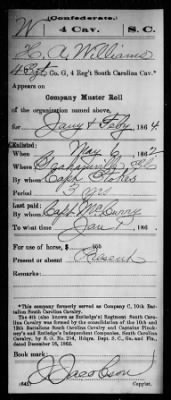 (Confederate.)
W 4 Cav. S.C.
H. A. Williams
4 Sgt, Co. G, 4 Reg't South Carolina Cav.*
Appears on
Company Muster Roll
of the organization named above,
for Jany & Feby, 1864.
Enlisted:
When May 6, 1862.
Where
By whom Capt Stokes
Period 3 yrs
Last paid:
By whom Capt
To what time Jan 1
For use of horse, $ 100
Present or absent Present
Remarks:
*This company formerly served as Company C, 10th Battalion South Carolina Cavalry.
The 4th (also known as Rutledge's) Regiment South Carolina Cavalry was formed by the consolidation of the 10th and 12th Battalions South Carolina Cavalry and Captains Pinckney's and Rutledge's Independent Companies, South Carolina Cavalry, by S. O. No.
Book mark:
(642) J Jacobson
Copyist.